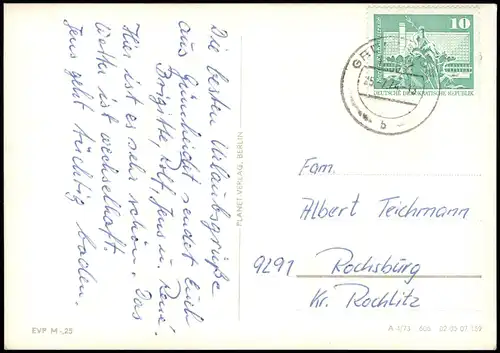 Die besten Urlaubsgrüße
aus sendet Euch
Brigitte, Rolf, Jens u. René.
Hier ist es sehr schön. Das
Wetter ist wechselhaft.
Jens geht tüchtig baden.
PLANET-VERLAG, BERLIN
EVP M -,25
10
DEUTSCHE DEMOKRATISCHE REPUBLIK
b
Fam.
Albert Teichmann
9291 Rochsburg
Kr. Rochlitz
A 1/73